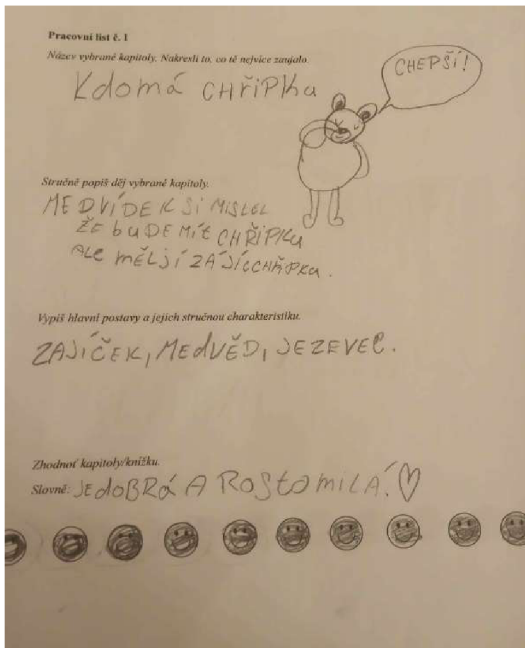 Pracovní list č. 1
Název vybrané kapitoly. Nakresli to, co tě nejvíce zaujalo.
Kdomá CHŘiPKu
CHEPŠÍ!
Stručně popiš děj vybrané kapitoly.
MEDVÍDEK Si MiSLEL
ŽE buDE MÍT CHŘiPKu
ALE mĚLJÍ ZAJÍCCHŘPKu.
Vypiš hlavní postavy a jejich stručnou charakteristiku.
ZAJÍČEK, MEDVĚD, JEZEVEC.
Zhodnoť kapitoly/knížku.
Slovně: JEdoBRá A ROSToMILÁ!